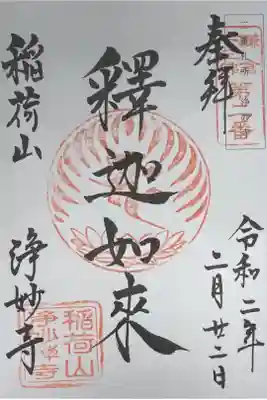 奉拝
令和二年
二月廿二日
釋迦如來
稲荷山
浄妙寺
稲荷山